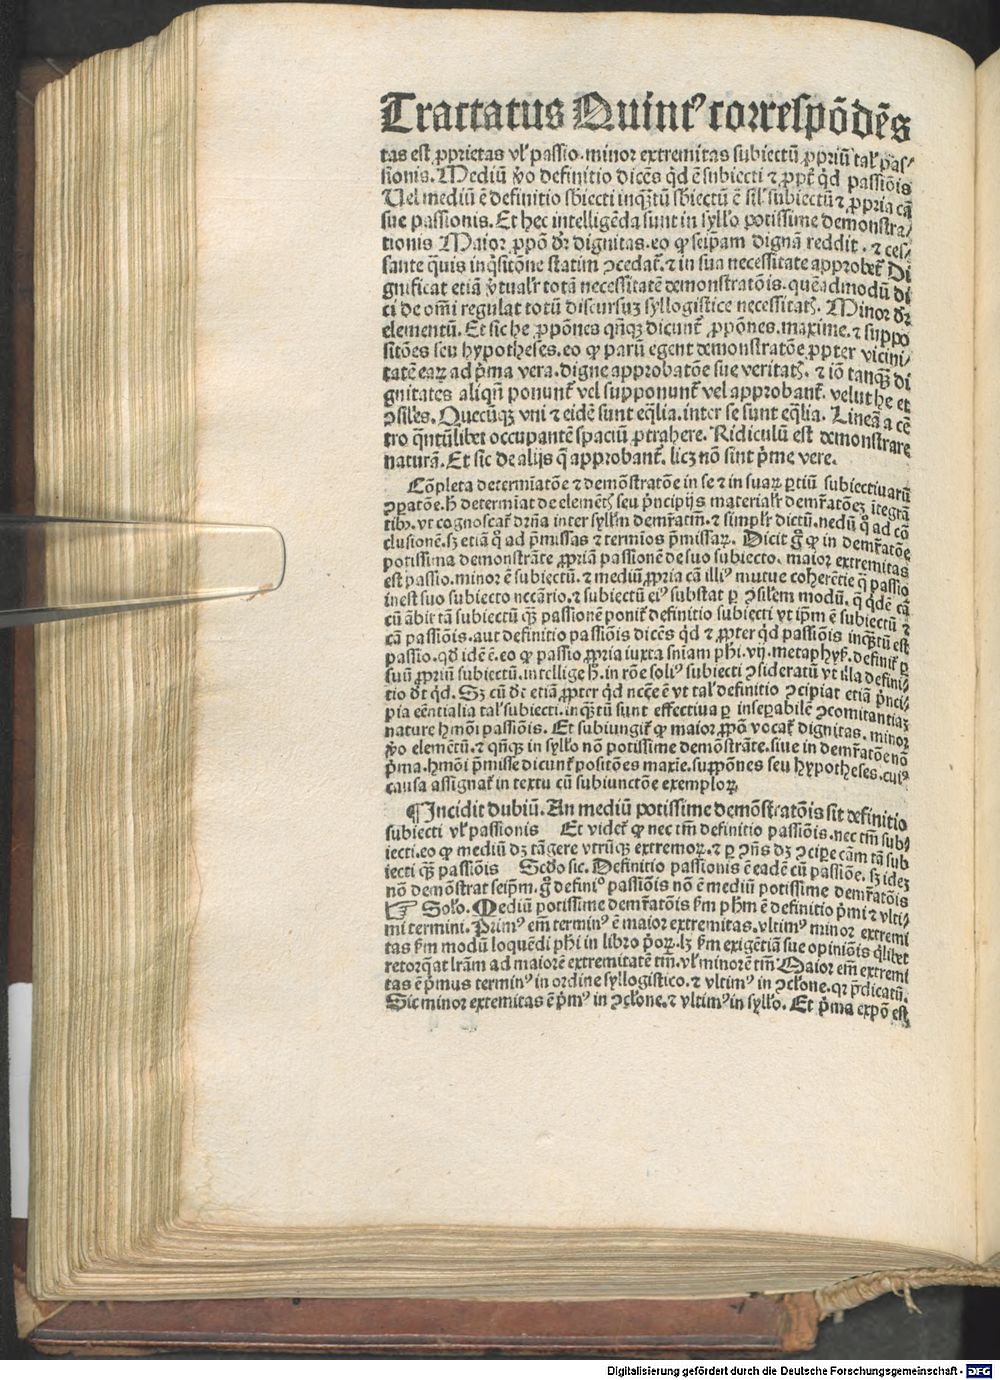 Tractatus Quintꝰ correspōdēs
tas est ꝓprietas vl' passio. minor extremitas subiectū ꝓpriū tal' pas⸗
sionis. Mediū ꝟo definitio dicēs qd̄ ē subiecti ⁊ ꝓpt̄ qd̄ passiōis
Uel mediū ē definitio sbiecti inqꝫtū sbiectū ē sil' subiectū ⁊ ꝓpria cā
sue passionis. Et hec intelligēda sunt in syllo potissime demonstra⸗
tionis Maior ꝓpō dr̄ dignitas. eo ꝙ seip̄am dignā reddit. ⁊ ces⸗
sante q̄uis inq̄sitōne statim ꝯcedat᷑. ⁊ in sua necessitate approbet᷑ Di
gnificat etiā ꝟtualr̄ totā necessitatē demonstratōis. quēadmodū di
ci de om̄i regulat totū discursuꝫ syllogistice necessitatꝭ. Minor dr̄
elementū. Et sic he ꝓpōnes qn̄qꝫ dicunt᷑ ꝓpōnes. maxime. ⁊ suppo
sitōes seu hypotheses. eo ꝙ parū egent demonstratōe ꝓpter vicini⸗
tatē earꝝ ad p̄ma vera. digne approbatōe sue veritatꝭ. ⁊ iō tanqꝫ di
gnitates aliqn̄ ponunt᷑ vel supponunt᷑ vel approbant᷑. velut he et
ꝯsiles. Quecūqꝫ vni ⁊ eidē sunt eq̄lia. inter se sunt eq̄lia. Lineā a cē
tro q̄ntūlibet occupantē spaciū ꝓtrahere. Ridiculū est demonstrare
naturā. Et sic de alijs q̄ approbant᷑. licꝫ nō sint p̄me vere.
Cōpleta determīatōe ⁊ demōstratōe in se ⁊ in suaꝝ ꝑtiū subiectiuarū
ꝯꝑatōe. h̄ determīat de elemētꝭ seu p̄ncipijs materialr̄ demr̄atōeꝫītegrā
tibꝰ. vt cognoscat᷑ dr̄n̄a inter syllm̄ demr̄atm̄. ⁊ simplr̄ dictū. nedū qͦ ad cō
clusionē. sꝫ etiā qͦ ad p̄missas ⁊ termīos p̄missaꝝ. Dicit gͦ ꝙ in demr̄atōe
potissima demonstrāte ꝓpriā passionē de suo subiecto. maior extremitas
est passio. minor ē subiectū. ⁊ mediū ꝓpria cā illiꝰ mutue coherētie q̄ passio
inest suo subiecto nccārio. ⁊ subiectū eiꝰ substat ꝑ ꝯsilem modū. q̄ qdē cā
cū ābit tā subiectū qꝫ passionē ponit᷑ definitio subiecti vt ip̄m ē subiectū ⁊
cā passiōis. aut definitio passiōis dicēs qd̄ ⁊ ꝓpter qd̄ passiōis inqꝫtū est
passio. qd̄ idē ē. eo ꝙ passio ꝓpria iuxta sn̄iam phi. vij. metaphyꝭ. definit᷑ ꝑ
suū ꝓpriū subiectū. intellige h̄. in rōe soliꝰ subiecti ꝯsideratū vt illa defini⸗
tio dꝫ qd̄. Sꝫ cū dꝫ etiā ꝓpter qd̄ ncc̄e ē vt tal' definitio ꝯcipiat etiā p̄nci⸗
pia eēntialia tal' subiecti. inqꝫtū sunt effectiua ꝑ inseꝑabilē ꝯcomitantiaꝫ
nature hm̄ōi passiōis. Et subiungit᷑ ꝙ maior ꝓpō vocat᷑ dignitas. minor
ꝟo elemētū. ⁊ qn̄qꝫ in syllo nō potissime demōstrāte. siue in demr̄atōe nō
p̄ma. hm̄ōi p̄misse dicunt᷑ positōes maxie. supp̄ōnes seu hypotheses. cuiꝰ
causa assignat᷑ in textu cū subiunctōe exemploꝝ.
¶ Incidit dubiū. An mediū potissime demōstratōis sit definitio
subiecti vl' passionis Et videt᷑ ꝙ nec tm̄ definitio passiōis. nec tm̄ sub⸗
iecti. eo ꝙ mediū dꝫ tāgere vtrūqꝫ extremoꝝ. ⁊ ꝑ ꝯn̄s dꝫ ꝯciꝑe cām tā sub
iecti qꝫ passiōis Scdo sic. Definitio passionis ē eadē cū passiōe. sꝫ ideꝫ
nō demōstrat seip̄m. gͦ definiꝰ passiōis nō ē mediū potissime demr̄atōis
☞ Solo. Mediū potissime demr̄atōis ẜm phm̄ ē definitio p̄mi ⁊ vlti⸗
mi termini. Primꝰ em̄ terminꝰ ē maior extremitas. vltimꝰ minor extremi
tas ẜm modū loquēdi phi in libro p̄oꝝ. lꝫ ẜm exigētiā sue opiniōis qͥlibet
retorq̄at lr̄am ad maiorē extremitatē tm̄. vl' minorē tm̄ Maior em̄ extremi
tas ē p̄mus terminꝰ in ordine syllogistico. ⁊ vltimꝰ in ꝯclōne. qr p̄dicatū.
Sic minor extemitas ē p̄mꝰ in ꝯclōne. ⁊ vltimꝰ in syllo. Et p̄ma expō est
Digitalisierung gefördert durch die Deutsche Forschungsgemeinschaft - DFG